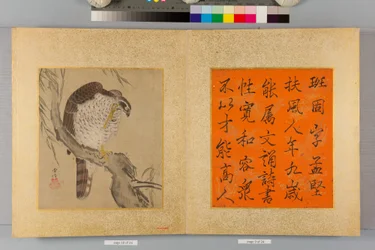 班固字孟堅
扶風人年九歲
能屬文誦詩書
性寬和容衆
不以才能高人